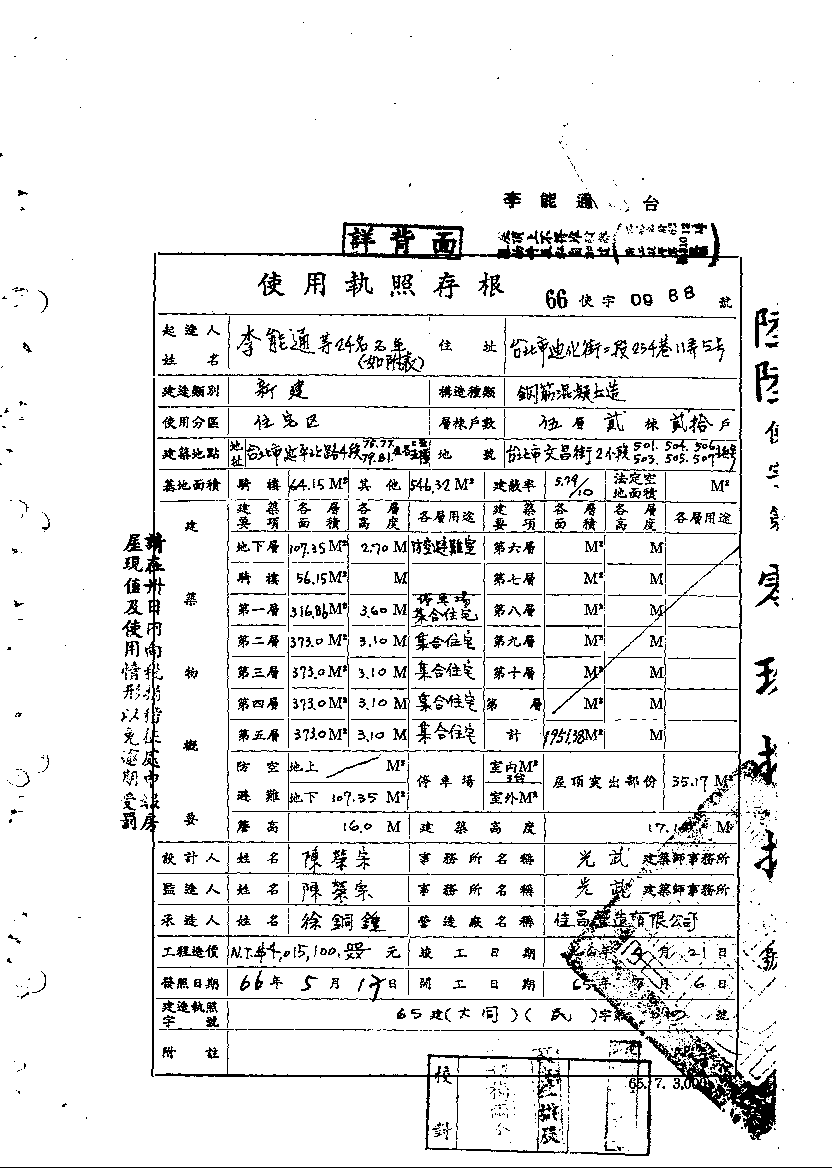 李能通 台
詳背面
使用執照存根 66使字0988號
起造人姓名 李能通等24名名單(如附表) 住址 台北市迪化街二段254巷11弄5号
建造類別 新建 構造種類 鋼筋混凝土造
使用分區 住宅区 層棟戶數 伍層貳棟貳拾戶
建築地點 地址 台北市延平北路4段 地號 台北市文昌街2小段501.504.506 503.505.507
基地面積 騎樓 64.15M² 其他 546.32M² 建蔽率 5.79/10 法定空地面積 M²
建築物概要 建築要項 各層面積 各層高度 各層用途 建築要項 各層面積 各層高度 各層用途
地下層 107.35M² 2.70M 防空避難室 第六層 M² M
騎樓 56.15M² M 第七層 M² M
第一層 316.86M² 3.60M 停車場 集合住宅 第八層 M² M
第二層 373.0M² 3.10M 集合住宅 第九層 M² M
第三層 373.0M² 3.10M 集合住宅 第十層 M² M
第四層 373.0M² 3.10M 集合住宅 第 層 M² M
第五層 373.0M² 3.10M 集合住宅 計 1951.38M² M
防空避難 地上 M² 地下 107.35M² 停車場 室內M² 室外M² 屋頂突出部份 35.17M²
簷高 16.0M 建築高度 17.1 M
設計人 姓名 陳榮宗 事務所名稱 光武建築師事務所
監造人 姓名 陳榮宗 事務所名稱 光武建築師事務所
承造人 姓名 徐銅鐘 營造廠名稱 佳昌營造有限公司
工程造價 N.T.$4,015,100.元 竣工日期 月21日
發照日期 66年5月17日 開工日期 65年 月6日
建造執照字號 65建(大同)(民)字第 號
附註
65.7.3,000
校對
請在卅日內向稅捐稽徵處申報房屋現值及使用情形以免逾期受罰